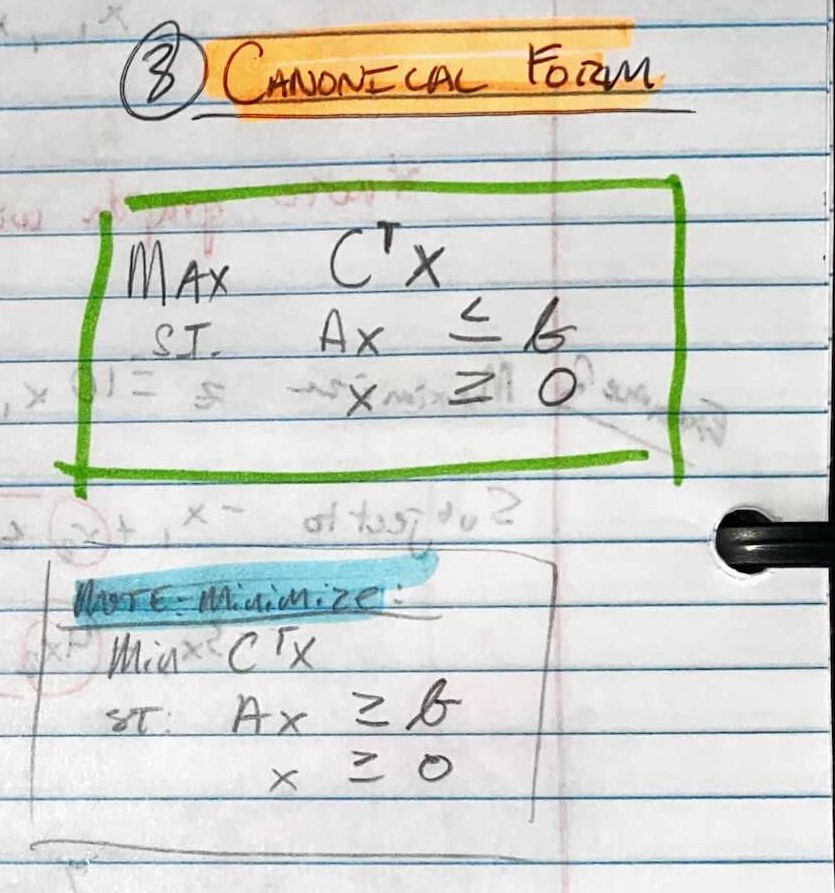 ③ CANONICAL FORM
MAX CᵀX
ST. AX ≤ b
x ≥ 0
NOTE-Minimize:
Min CᵀX
ST: AX ≥ b
x ≥ 0